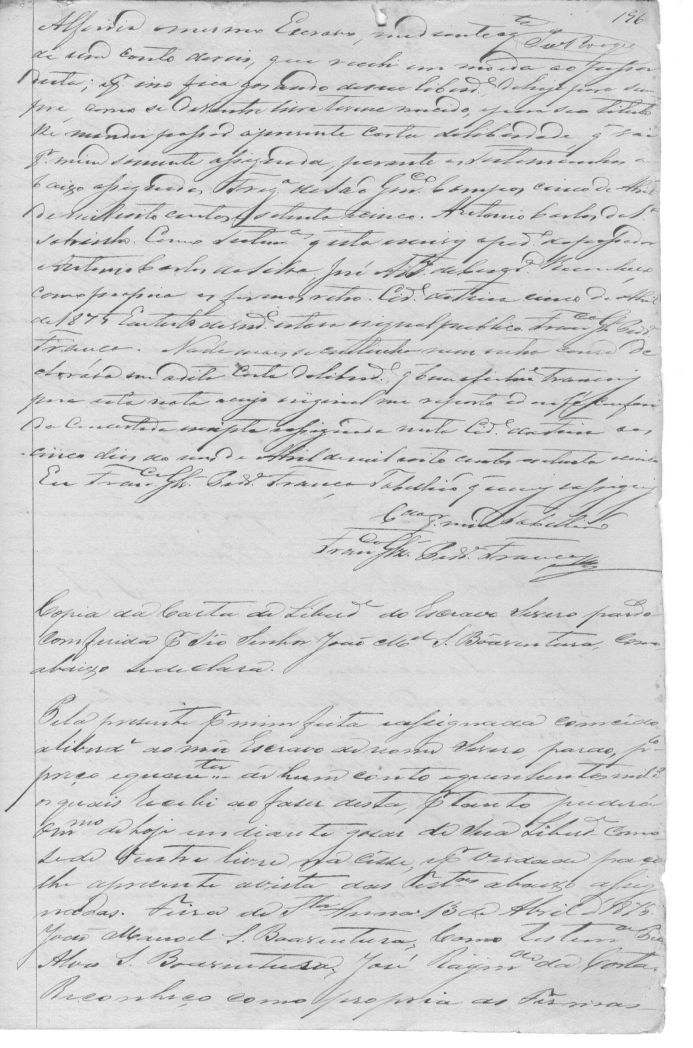 196
Alforria o mesmo Escravo, mediante a q.ta
de um conto de reis, que recebi em moeda ao passar
desta; pr. isso fica gosando de sua liberd.e de hoje para sem
pre como se de ventre livre tivesse nascido, e para seo titulo
lhe mandei passar a presente carta de liberdade q vai
pr. mim somente assignada, perante as testemunhas a
baixo assignadas. Freg.a de São Gon.co Campos cinco de Abril
de mil oito centos e setenta e cinco. Antonio Carlos da S.a
Sobrinho. Como testem.as q esta escrevy a ped.o do passador
Antonio Carlos da Silva, José
como propria as firmas retro. Cid.e da Feira cinco de Abril
de 1875 Em test.o de verd.e estava o signal publico Fran.co Glz. Pedr.a
Franco. Nada mais se continha nem outra cousa de
clarava em a dita Carta de liberd.e q bem e fielm.e transcrevy
para esta nota a cujo original me reporto
do Concertada escripta e assignada nesta Cid.e da Feira aos
cinco dias do mes de Abril de mil oito centos e setenta e cinco
Eu Fran.co Glz. Pedr.a Franco Tabellião q escrevy e assignei
C.da pr. mim Tabellião
Fran.co Glz. Pedr.a Franco
Copia da Carta de Liberd.e do Escravo Severo pardo
Comferida pr. Sio Senhor João M.el S. Bôaventura, como
abaixo se declara.
Pela presente pr. mim feita e assignada comcedo
a liberd.e ao meu Escravo de nome Severo pardo, pr.
preço e quan.tia de hum conto e quinhentos mil r.s
os quais recebi ao faser desta, pr. tanto poderá
o m.mo de hoje em diante gosar de sua Liberd.e como
se de Ventre livre na cêsse, e pr. verdade paço
lhe a presente a vista das test.as abaixo assig
nadas. Feira de S.ta Anna 13 de Abril d' 1875
João Manoel S. Boaventura, Como testem.as
Alves S. Boaventura, José Raym.do da Costa.
Reconheço como propria as Firmas